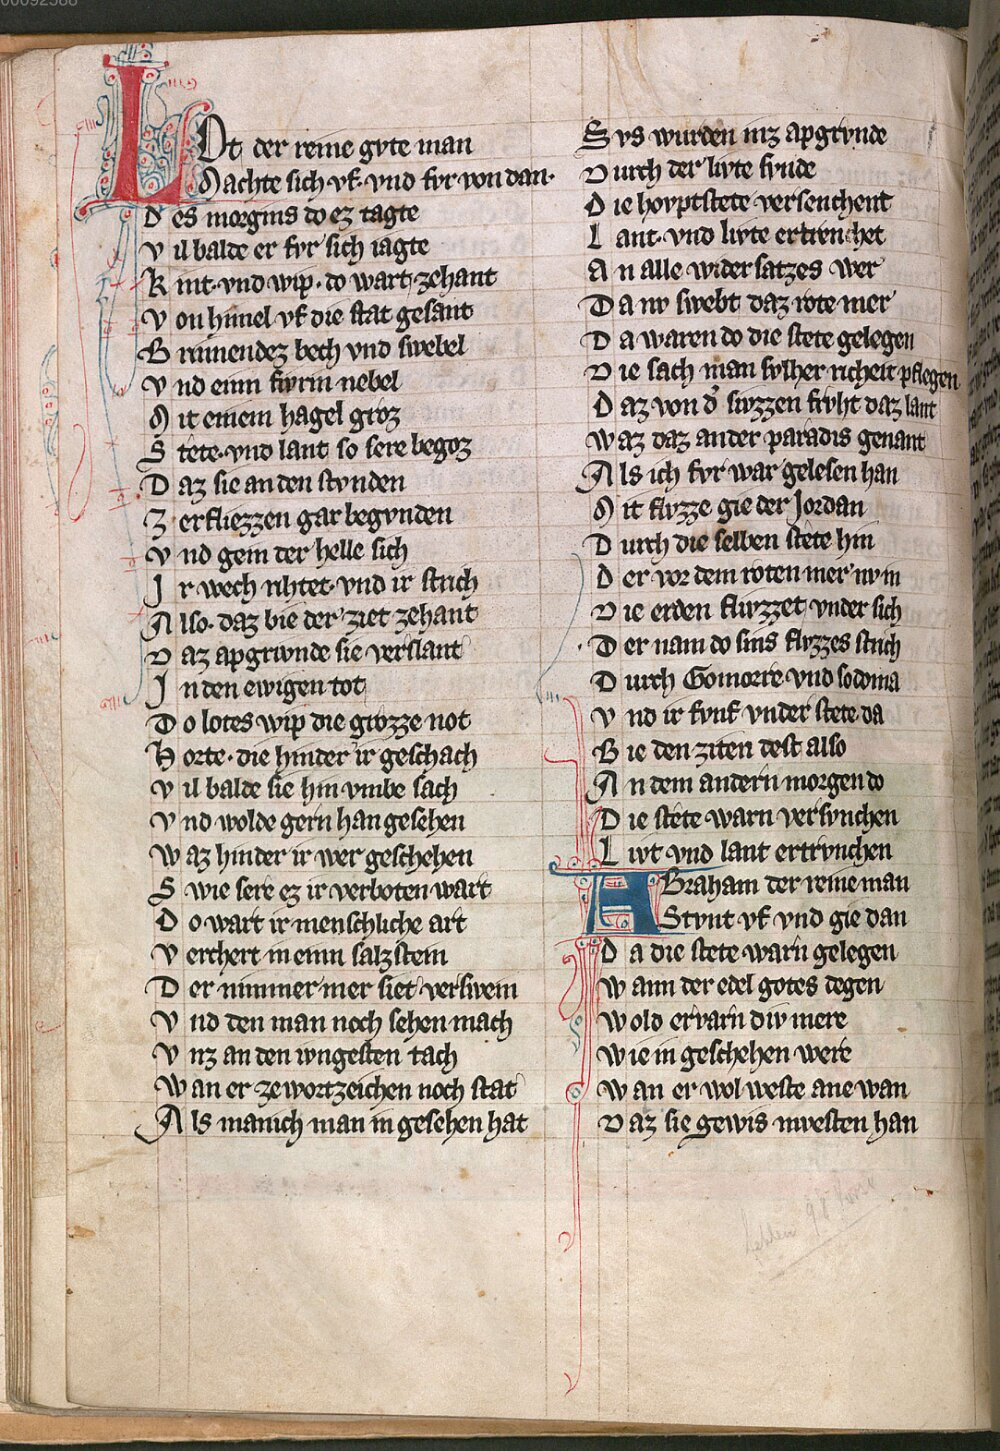 00092588
LOt der reine gvte man
Machte sich vf· vnd fvr von dan·
Des morgins do ez tagte
Vil balde er fvr sich iagte
Kint· vnd wip· do wart zehant
Von himel vf die stat gesant
Brinnendez bech vnd swebel
Vnd einn fivrin nebel
Mit einem hagel groz
Stete· vnd lant so sere begoz
Daz sie an den stvnden
Zerfliezzen gar begvnden
Vnd gein der helle sich
Ir wech rihtet· vnd ir strich
Also· daz bie der ziet zehant
Daz apgrivnde sie verslant
In den ewigen tot
Do lotes wip die grozze not
Horte· die hinder ir geschach
Vil balde sie hin vmbe sach
Vnd wolde gern han gesehen
Waz hinder ir wer geschehen
Swie sere ez ir verboten wart
Do wart ir menschliche art
Verchert in einn salzstein
Der nimmer mer siet verswein
Vnd den man noch sehen mach
Vnz an den ivngesten tach
Wan er ze wortzeichen noch stat
Als manich man in gesehen hat
Svs wurden inz apgrvnde
Durch der livte svnde
Die hovptstete versenchent
Lant· vnd livte ertrenchet
An alle widersatzes wer
Da nv swebt daz rote mer
Da waren do die stete gelegen
Die sach man solher richeit pflegen
Daz von d' svzzen frvht daz lant
Waz daz ander paradis genant
Als ich fvr war gelesen han
Mit flvzze gie der Jordan
Durch die selben stete hin
Der vor dem roten mer nv in
Die erden flivzzet vnder sich
Der nam do sins flvzzes strich
Durch Gomorre vnd sodoma
Vnd ir fvnf vnder stete da
Bie den ziten dest also
An dem andern morgen do
Die stete warn versvnchen
Livt vnd lant ertrvnchen
ABraham der reine man
Stvnt vf vnd gie dan
Da die stete warn gelegen
Wann der edel gotes degen
Wold ervarn div mere
Wie in geschehen were
Wan er wol weste ane wan
Daz sie gewis mvesten han
fehlen 98 Verse